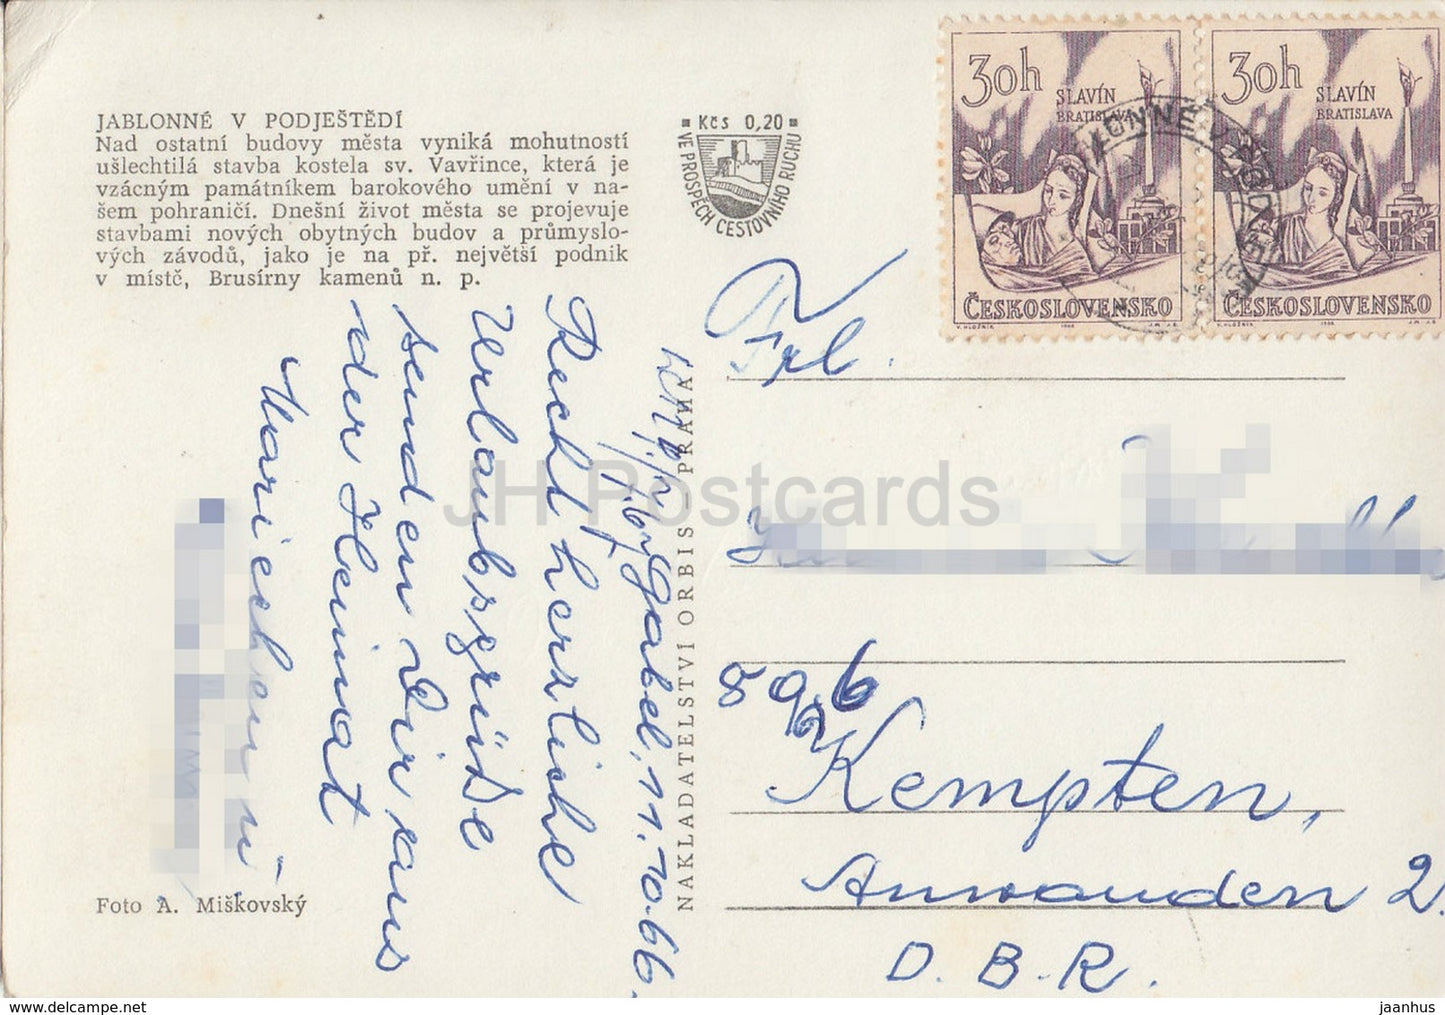 JABLONNÉ V PODJEŠTĚDÍ
Nad ostatní budovy města vyniká mohutností
ušlechtilá stavba kostela sv. Vavřince, která je
vzácným památníkem barokového umění v na-
šem pohraničí. Dnešní život města se projevuje
stavbami nových obytných budov a průmyslo-
vých závodů, jako je na př. největší podnik
v místě, Brusírny kamenů n. p.
Kčs 0,20
VE PROSPĚCH CESTOVNÍHO RUCHU
30h
SLAVÍN
BRATISLAVA
ČESKOSLOVENSKO
V. HLOŽNÍK 1966 J.M. J.S.
30h
SLAVÍN
BRATISLAVA
ČESKOSLOVENSKO
V. HLOŽNÍK 1966 J.M. J.S.
Gabel, 11.10.66.
Recht herzliche
Urlaubsgrüße
senden Dir aus
der Heimat
Mariechen u
NAKLADATELSTVÍ ORBIS — PRAHA
Frl.
896
Kempten,
Anwanden 2.
D.B.R.
Foto A. Miškovský
JH Postcards
www.delcampe.net
jaanhus